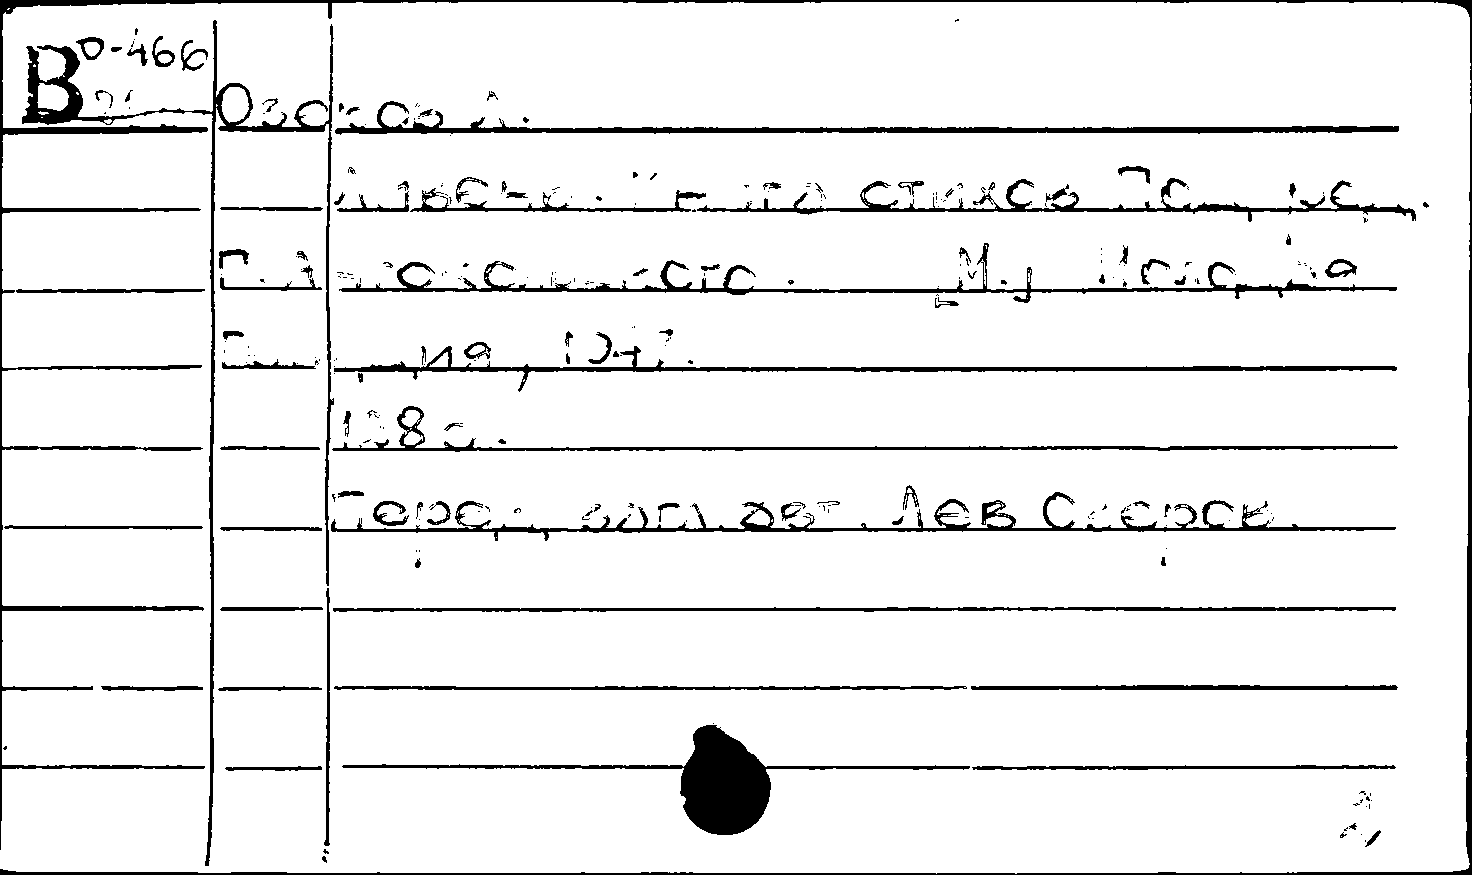 В О-466
21 Озеров Л.
Ливень. Книга стихов. Под ред.
П. Антокольского. [М.] Молодая
Гвардия, 1947.
128 с.
Перед загл. авт. Лев Озеров.